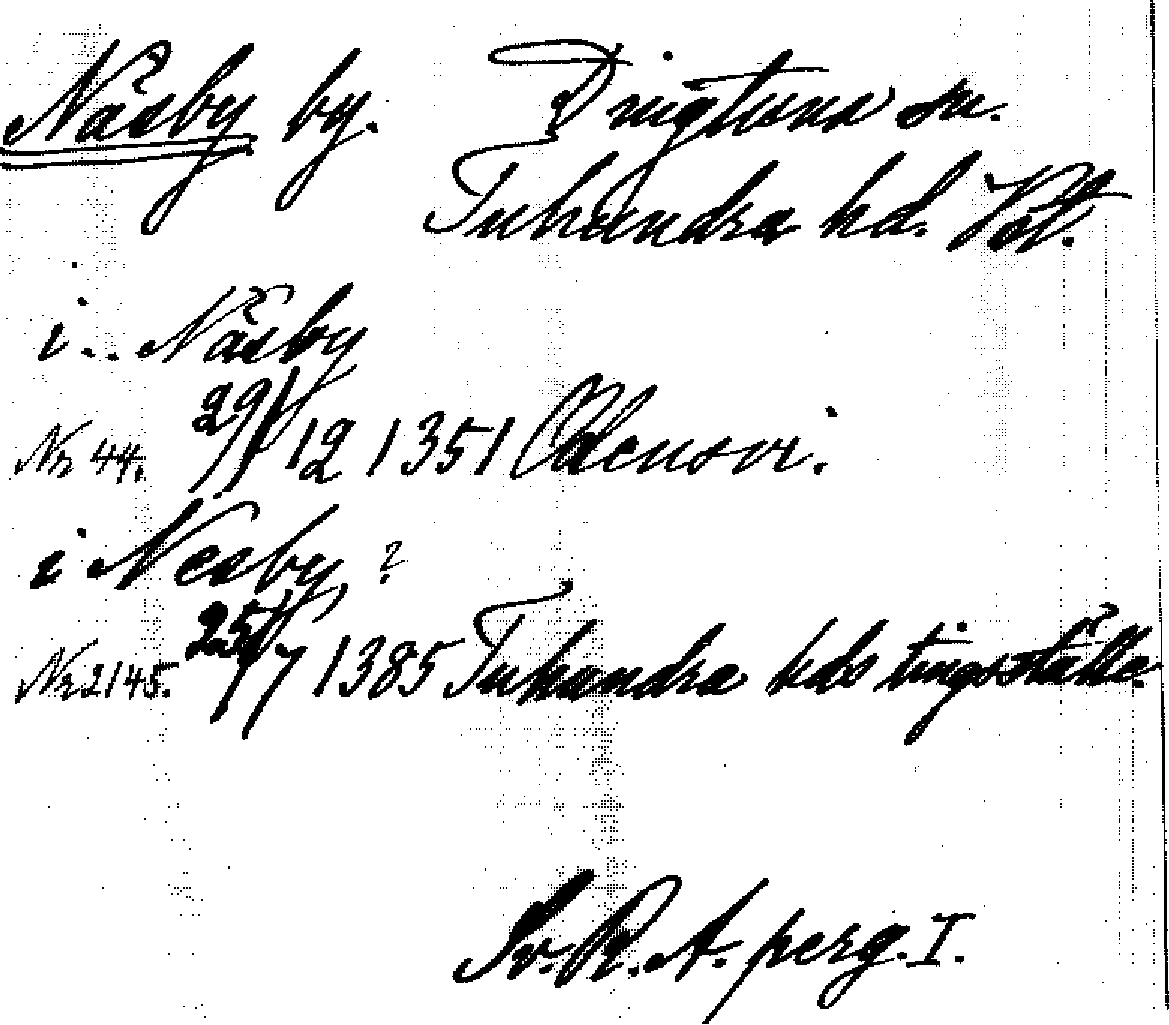 Näsby by. Dingtuna sn.
Tuhundra hd. Vstl.
i .. Näsby
Nr 44. 29/12 1351 Odensvi.
i Nesby ?
Nr 2145. 25/7 1385 Tuhundra hds tingsställe.
Sv. R. A. perg. I.